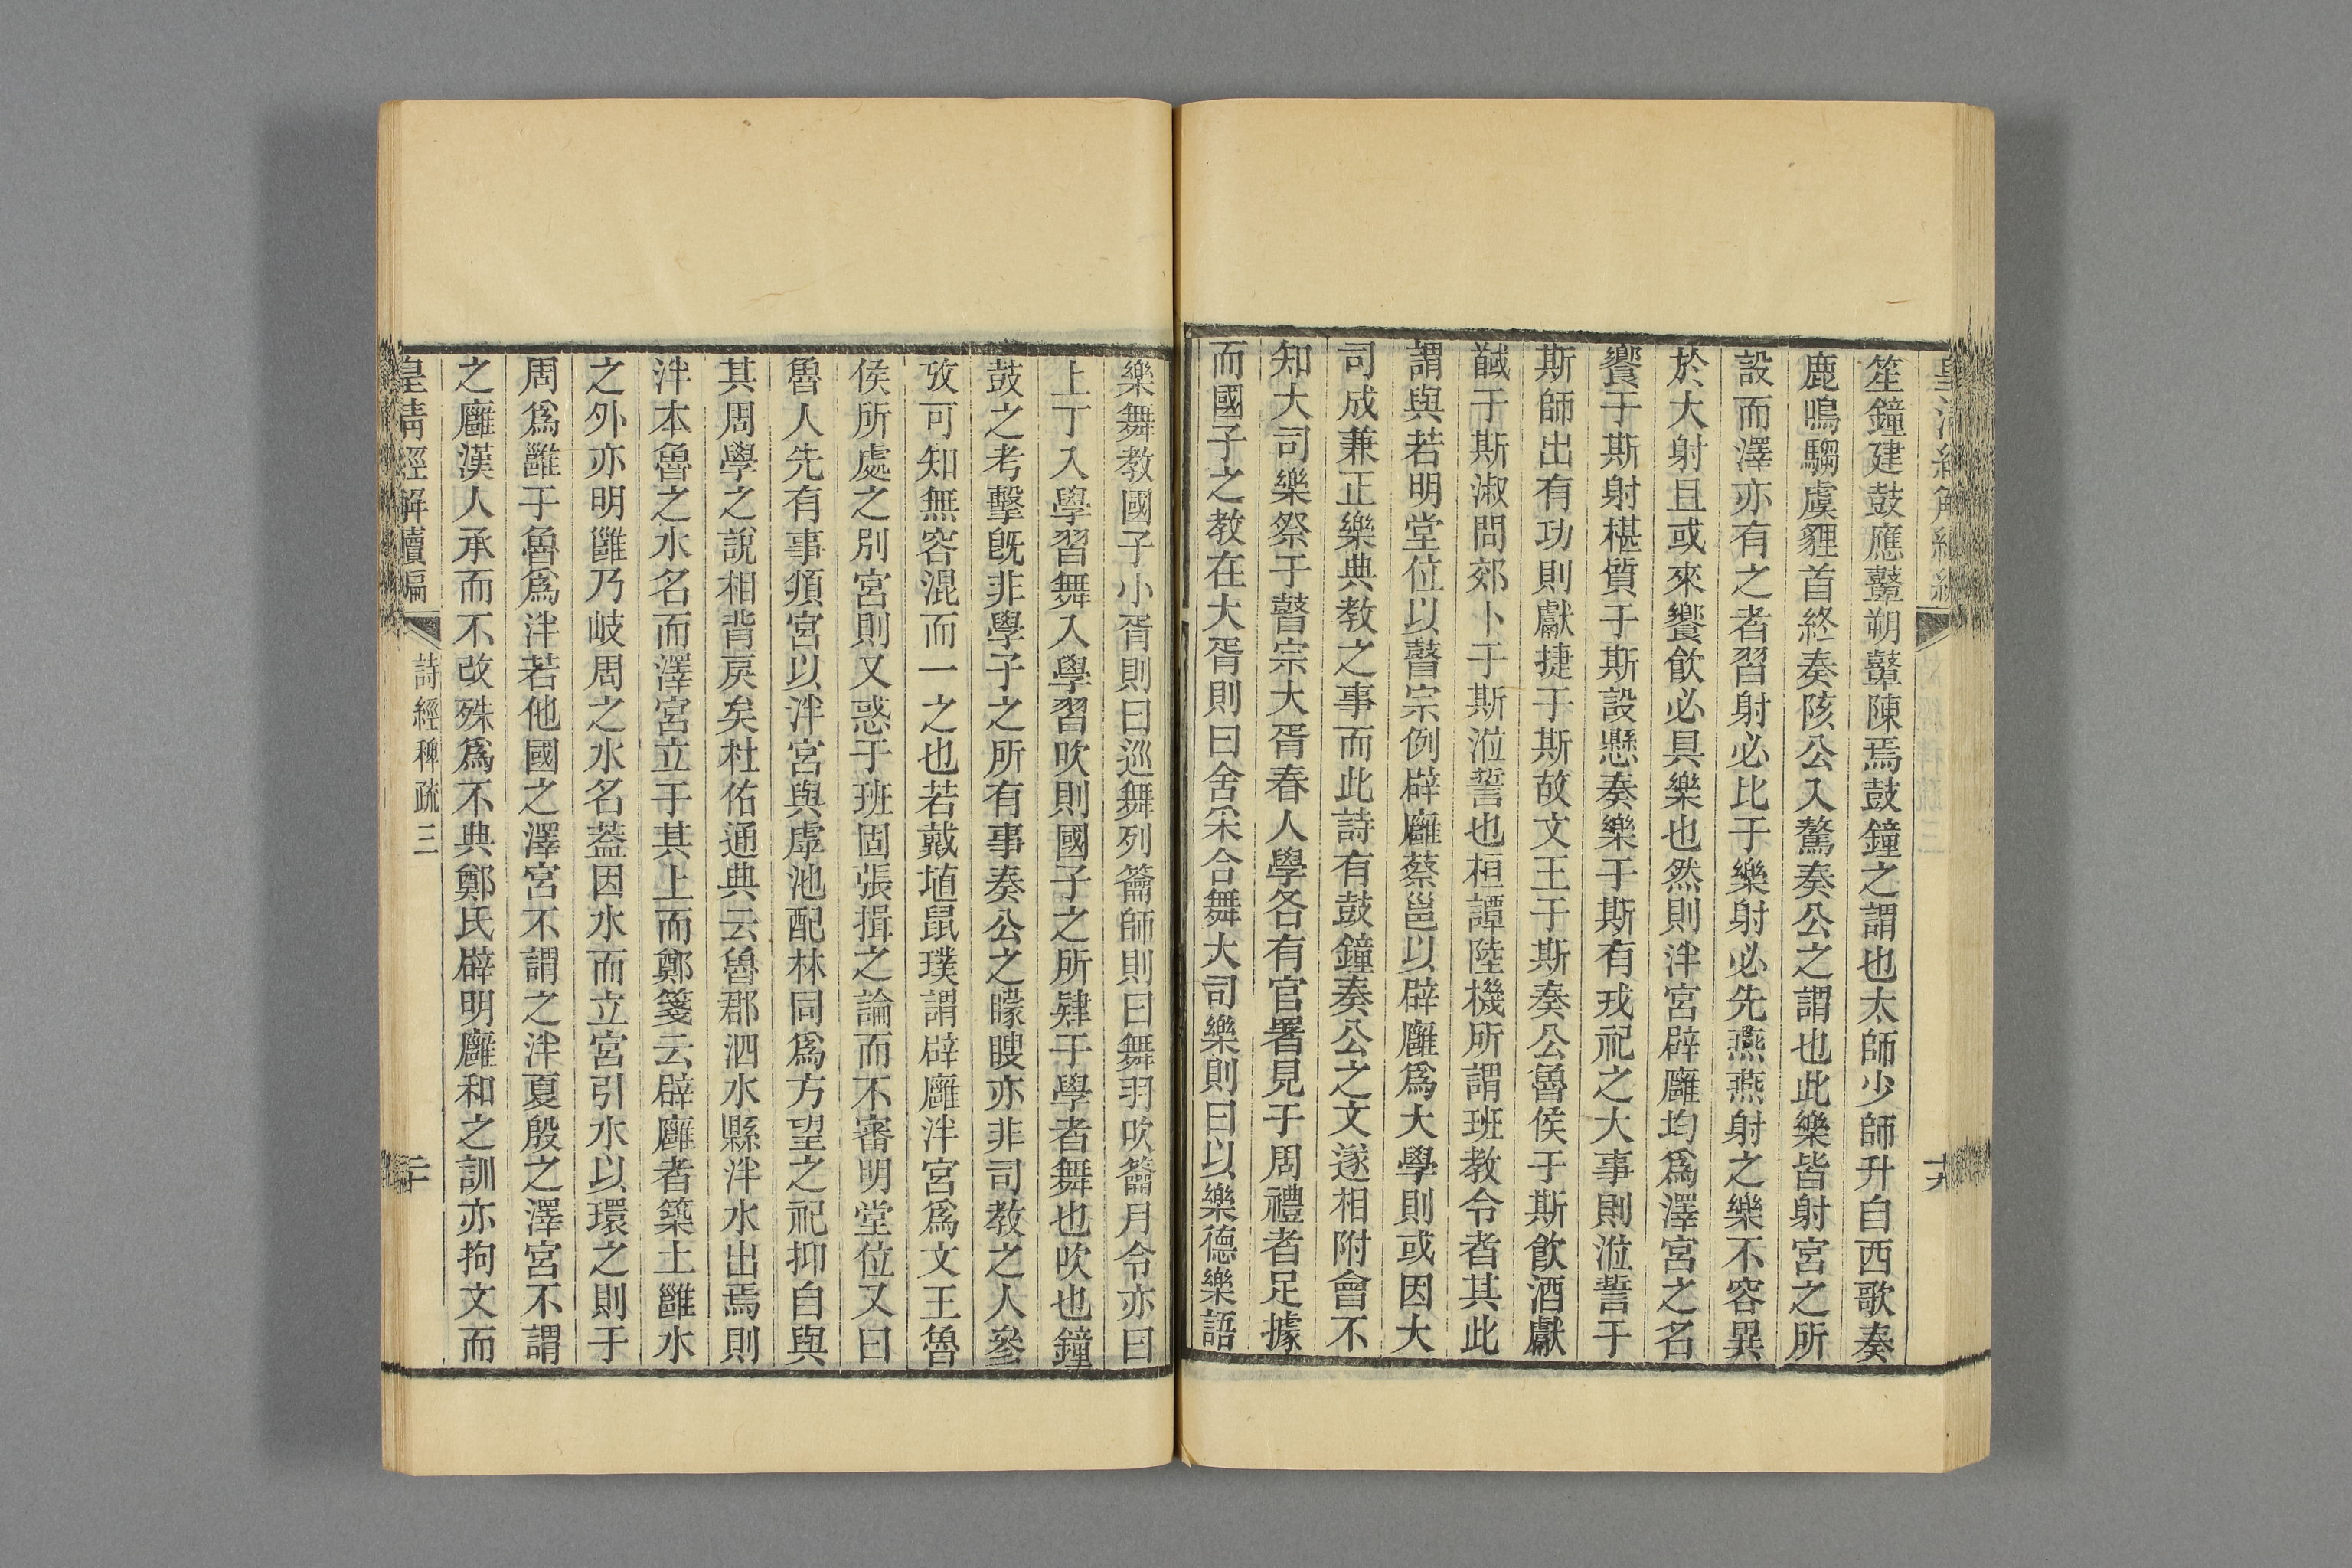 笙鐘建鼓應鼙朔鼙陳焉鼓鐘之謂也太師少師升自西歌奏
鹿鳴騶虞貍首終奏陔公入驁奏公之謂也此樂皆射宮之所
設而澤亦有之者習射必比于樂射必先燕燕射之樂不容異
於大射且或來饗飲必具樂也然則泮宮辟廱均爲澤宮之名
饗于斯射椹質于斯設懸奏樂于斯有戎祀之大事則涖誓于
斯師出有功則獻捷于斯故文王于斯奏公魯侯于斯飲酒獻
馘于斯淑問郊卜于斯涖誓也桓譚陸機所謂班教令者其此
謂與若明堂位以瞽宗例辟廱蔡邕以辟廱爲大學則或因大
司成兼正樂典教之事而此詩有鼓鐘奏公之文遂相附會不
知大司樂祭于瞽宗大胥春人學各有官署見于周禮者足據
而國子之教在大胥則曰舍采合舞大司樂則曰以樂德樂語
樂舞教國子小胥則曰巡舞列籥師則曰舞羽吹籥月令亦曰
上丁入學習舞入學習吹則國子之所肄于學者舞也吹也鐘
鼓之考擊旣非學子之所有事奏公之矇瞍亦非司教之人參
攷可知無容混而一之也若戴埴鼠璞謂辟廱泮宮爲文王魯
侯所處之別宮則又惑于班固張揖之論而不審明堂位又曰
魯人先有事頖宮以泮宮與虖池配林同爲方望之祀抑自與
其周學之說相背戾矣杜佑通典云魯郡泗水縣泮水出焉則
泮本魯之水名而澤宮立于其上而鄭箋云辟廱者築土雝水
之外亦明雝乃岐周之水名葢因水而立宮引水以環之則于
周爲雝于魯爲泮若他國之澤宮不謂之泮夏殷之澤宮不謂
之廱漢人承而不改殊爲不典鄭氏辟明廱和之訓亦拘文而
皇清經解續編
詩經稗疏三
二十